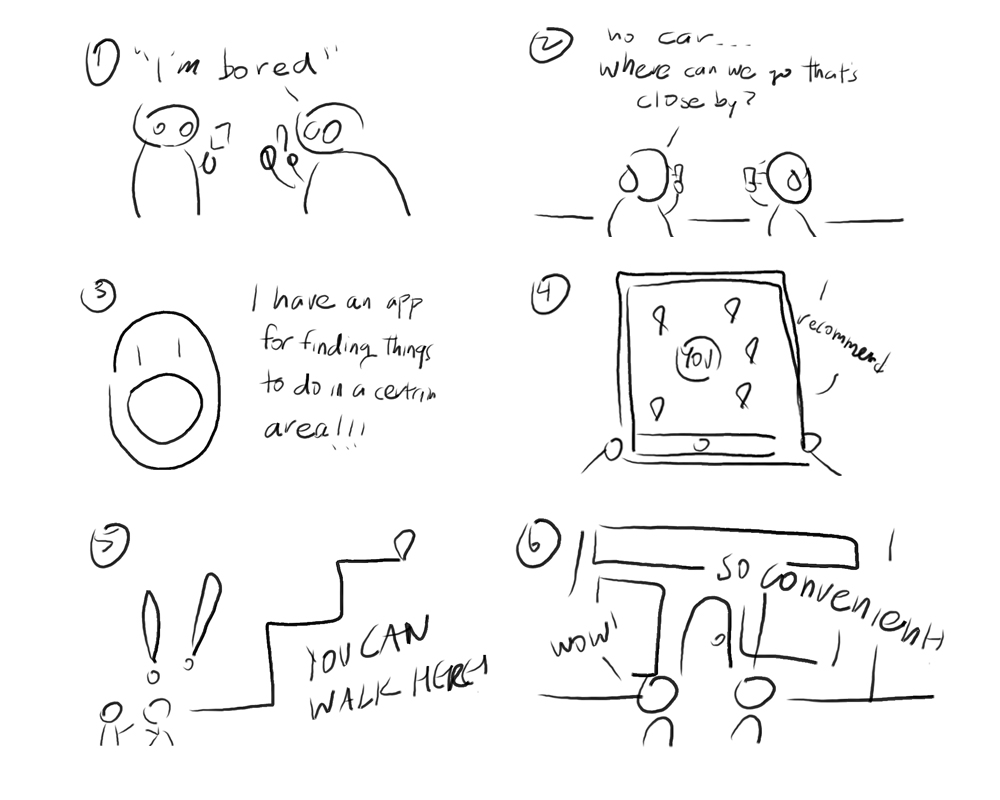 1
"I'm bored"
2
no car...
where can we go that's
close by?
3
I have an app
for finding things
to do in a certrin
area!!!
4
YOU
I
recommend
5
!!
YOU CAN
WALK HERE!
6
SO CONVENIENT
WOW!